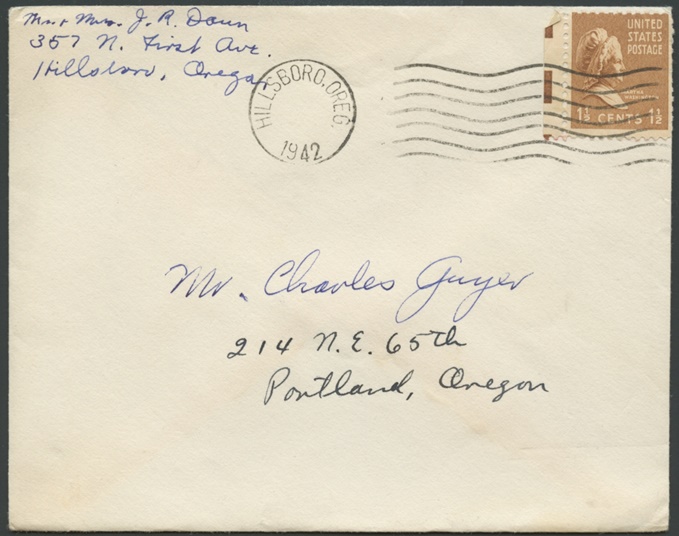 Mr. + Mrs. J. R. Doun
357 N. First Ave.
Hillsboro, Oregon
HILLSBORO, OREG.
1942
UNITED
STATES
POSTAGE
MARTHA
WASHINGTON
1½ CENTS 1½
Mr. Charles Guyer
214 N.E. 65th
Portland, Oregon